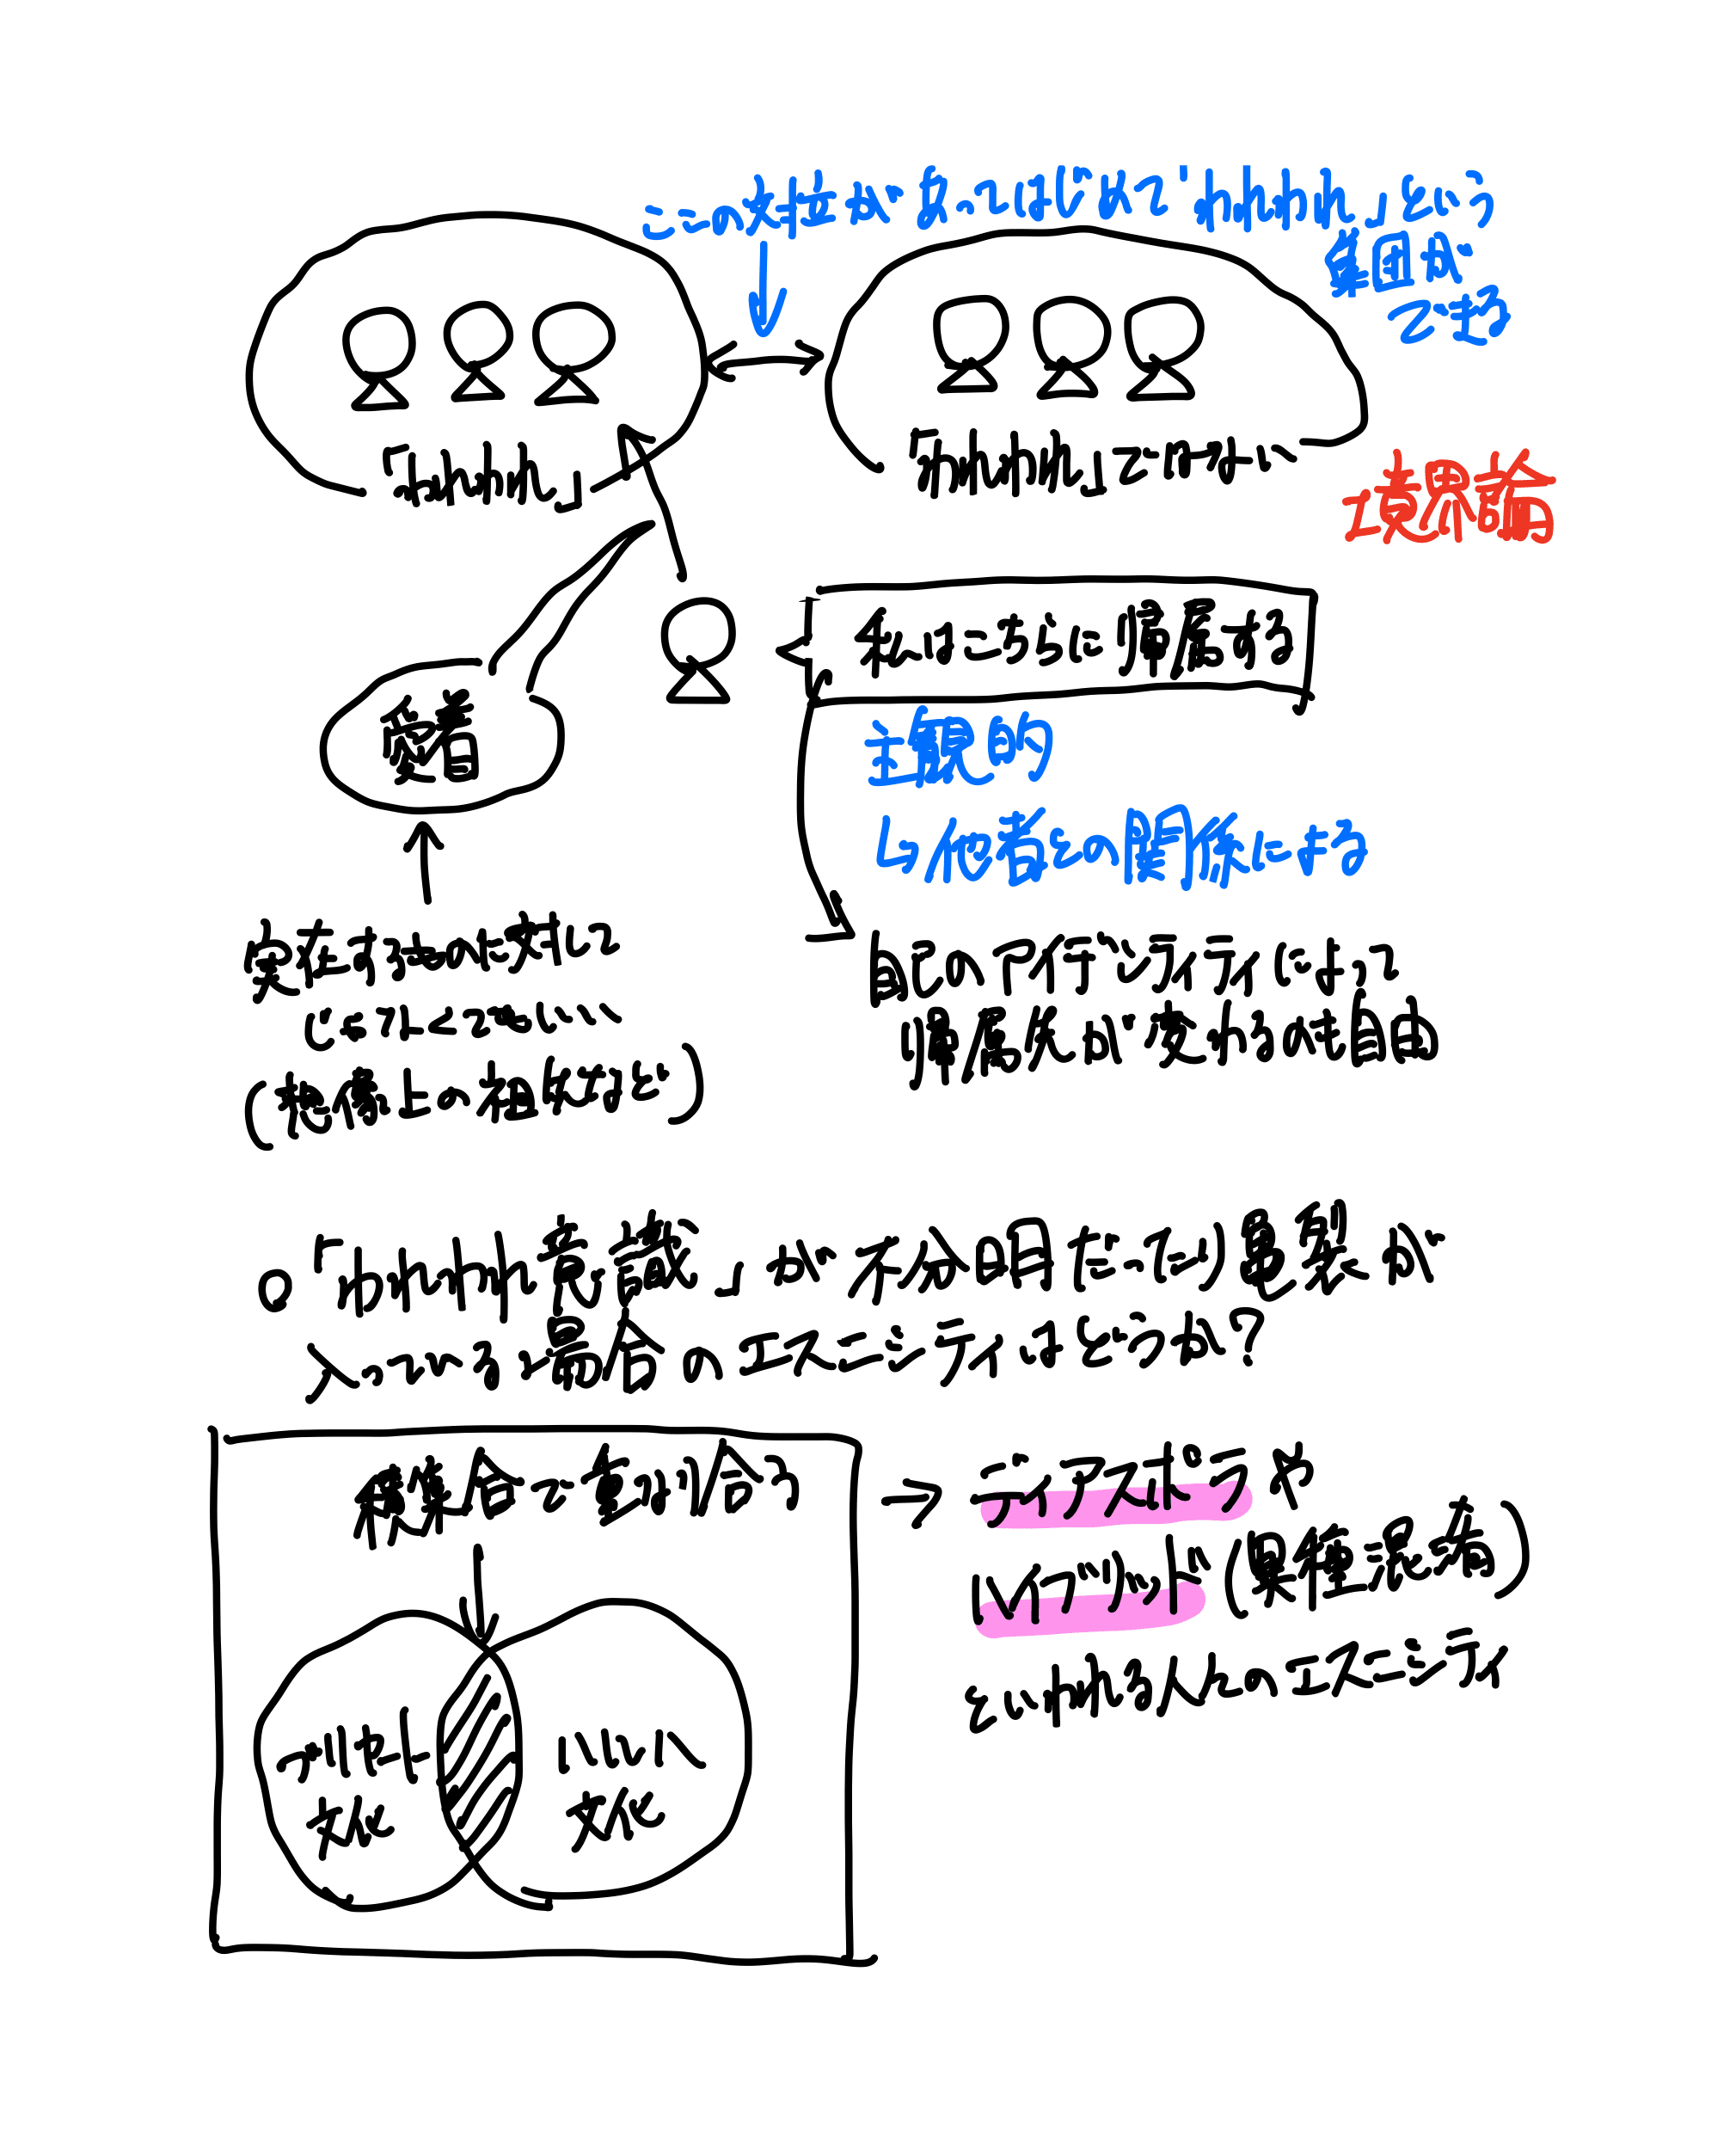 この対立があってはじめて「われわれ」という
集団ができる
「われわれ」
「われわれ」ではない
境界論
私はこちらに帰属する
愛着
主観的
↳他者との関係による
実在するものに対して
じゃなくてもいい
(想像上の祖先など)
自己のアイデンティティによって
帰属先が変わるのも自由
○「われわれ意識」が不分明だったり亀裂が
入っている場合のエスニシティはどうか?
複雑な重なり合い
→ディアスポラや
ハイブリッド(異種混淆)
といわれる人々のエスニシティ
文化
文化